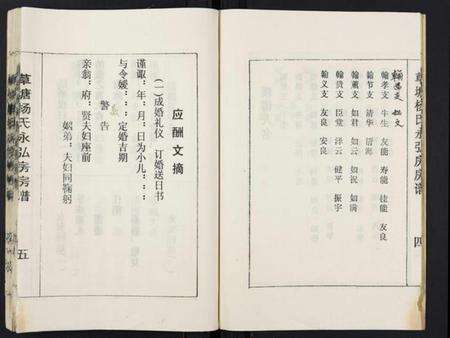 草塘杨氏永弘房房谱
四
翰孝支 牛生 友能 寿能 佳能 友良
翰节支 清华 清海
翰薰支 如君 如云 如祝 如满
翰贵支 臣堂 洋云 健平 振宇
翰义支 友能 友良 安良
应酬文摘
(一)成婚礼仪 订婚送日书
谨诹:年:月:日为小儿::
与令媛:::定婚吉期
警告
亲翁:府:贤夫妇座前
姻弟:夫妇同鞠躬
草唐杨氏永弘房房谱
五